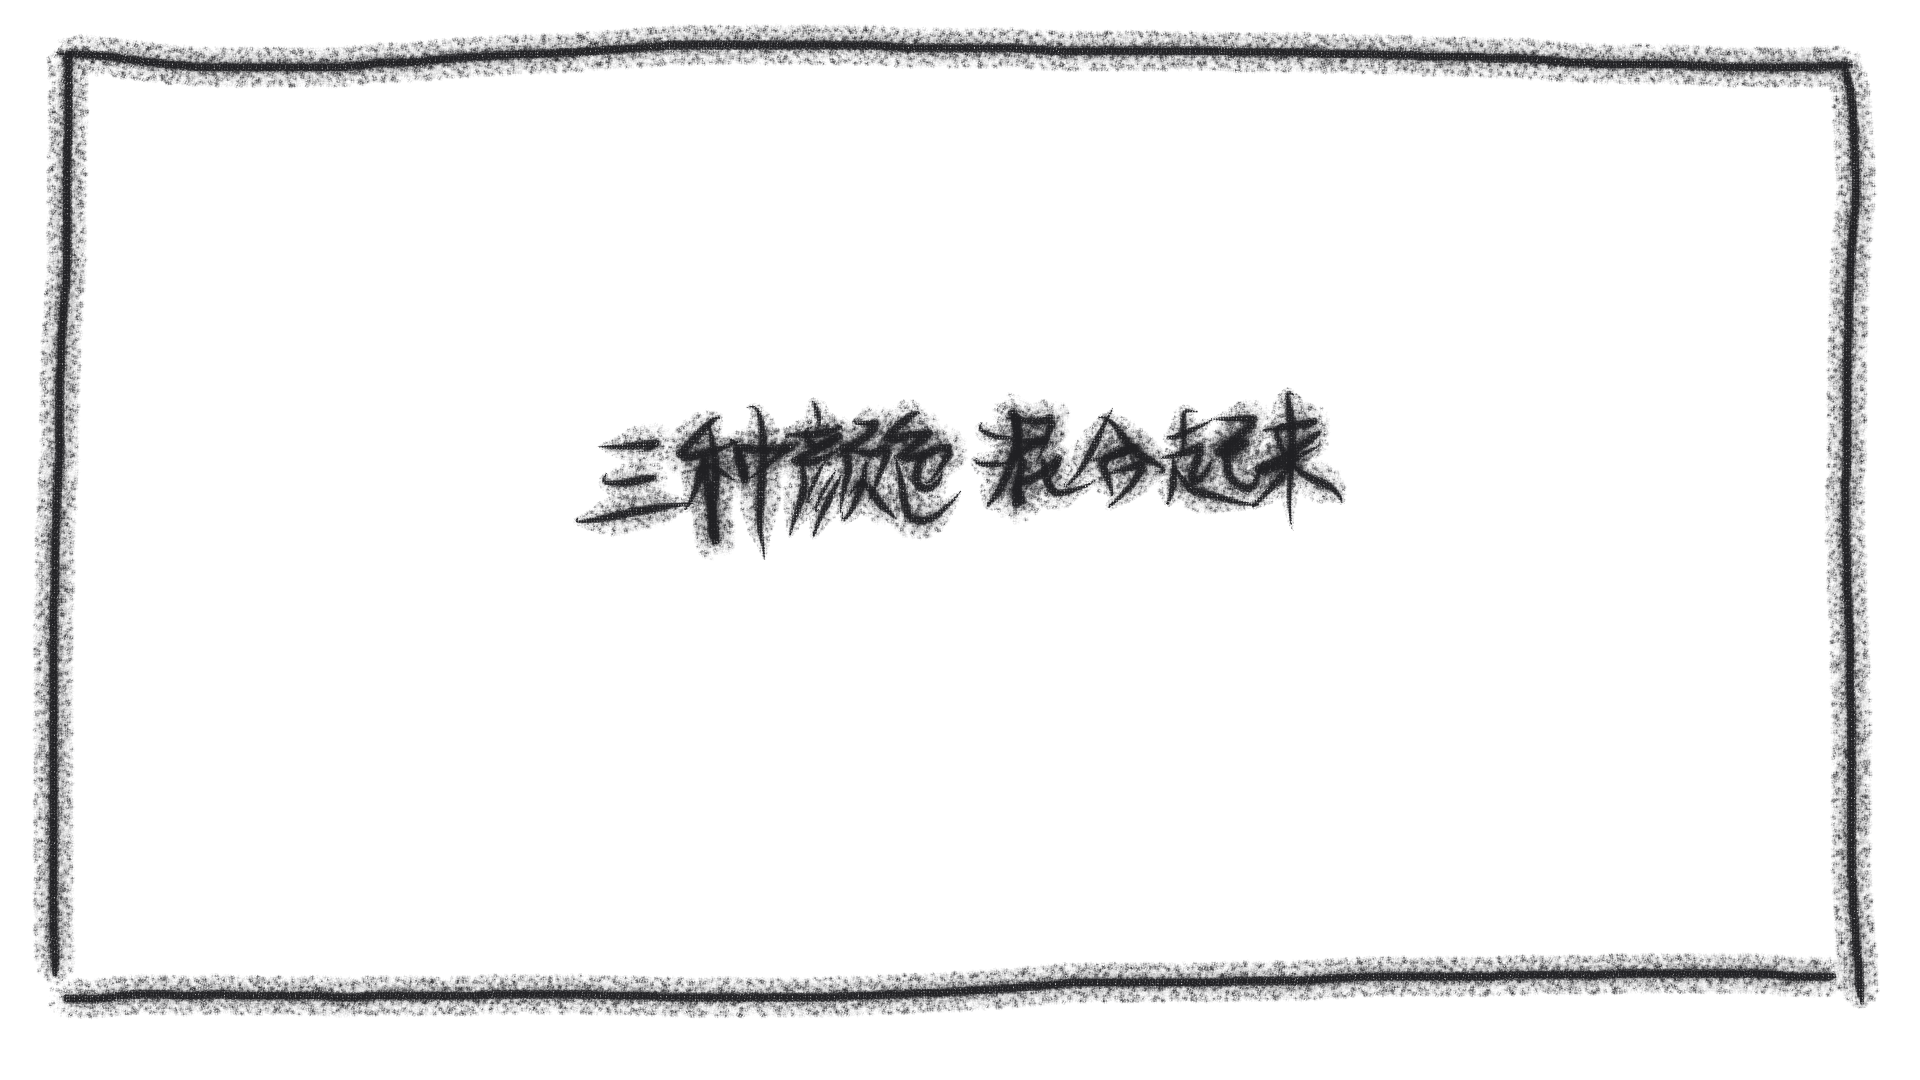 三种颜色 混合起来